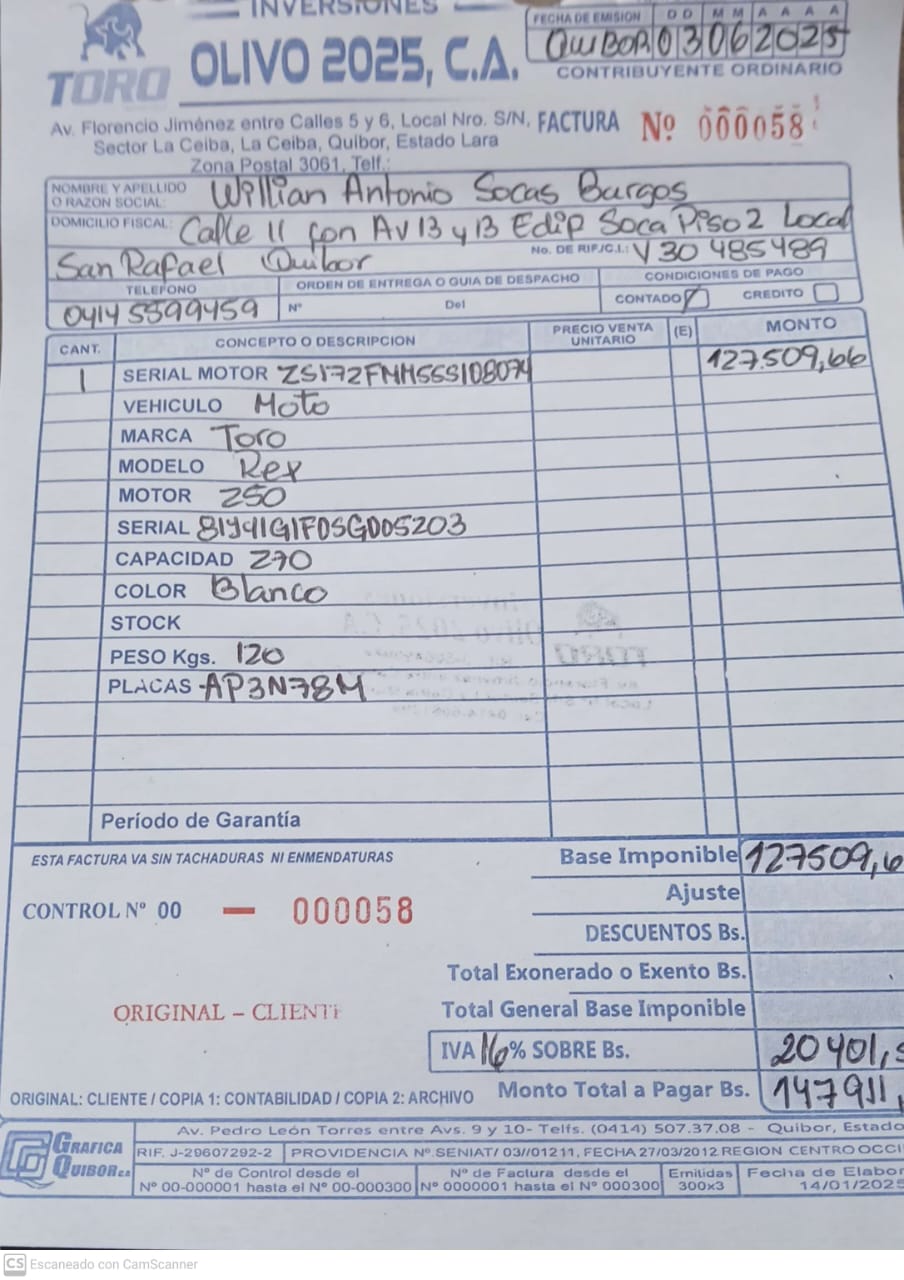 INVERSIONES
OLIVO 2025, C.A.
TORO
FECHA DE EMISION D D M M A A A A
QUIBOR 03 06 2025
CONTRIBUYENTE ORDINARIO
Av. Florencio Jiménez entre Calles 5 y 6, Local Nro. S/N,
Sector La Ceiba, La Ceiba, Quibor, Estado Lara
Zona Postal 3061, Telf.:
FACTURA Nº 000058
NOMBRE Y APELLIDO O RAZON SOCIAL: Willian Antonio Socas Burgos
DOMICILIO FISCAL: Calle 11 con Av 13 y 13 Edip Soca Piso 2 Local
San Rafael Quibor No. DE RIF./C.I.: V 30 485489
TELEFONO ORDEN DE ENTREGA O GUIA DE DESPACHO CONDICIONES DE PAGO
0414 5599459 Nº Del CONTADO CREDITO
CANT. CONCEPTO O DESCRIPCION PRECIO VENTA UNITARIO (E) MONTO
1 SERIAL MOTOR ZS172FMM5SS108074 127.509,66
VEHICULO Moto
MARCA Toro
MODELO Rex
MOTOR 250
SERIAL 81Y41G1F0SG005203
CAPACIDAD 270
COLOR Blanco
STOCK
PESO Kgs. 120
PLACAS AP3N78M
Período de Garantía
ESTA FACTURA VA SIN TACHADURAS NI ENMENDATURAS
Base Imponible 127509,6
Ajuste
CONTROL Nº 00 — 000058
DESCUENTOS Bs.
Total Exonerado o Exento Bs.
ORIGINAL – CLIENTE
Total General Base Imponible
IVA 16% SOBRE Bs. 20401,
ORIGINAL: CLIENTE / COPIA 1: CONTABILIDAD / COPIA 2: ARCHIVO
Monto Total a Pagar Bs. 147911,
GRAFICA QUIBOR C.A.
Av. Pedro León Torres entre Avs. 9 y 10- Telfs. (0414) 507.37.08 - Quibor, Estado
RIF. J-29607292-2 PROVIDENCIA Nº SENIAT/ 03//01211, FECHA 27/03/2012 REGION CENTRO OCCI
Nº de Control desde el Nº de Factura desde el Emitidas Fecha de Elabor
Nº 00-000001 hasta el Nº 00-000300 Nº 0000001 hasta el Nº 000300 300x3 14/01/2025
CS Escaneado con CamScanner